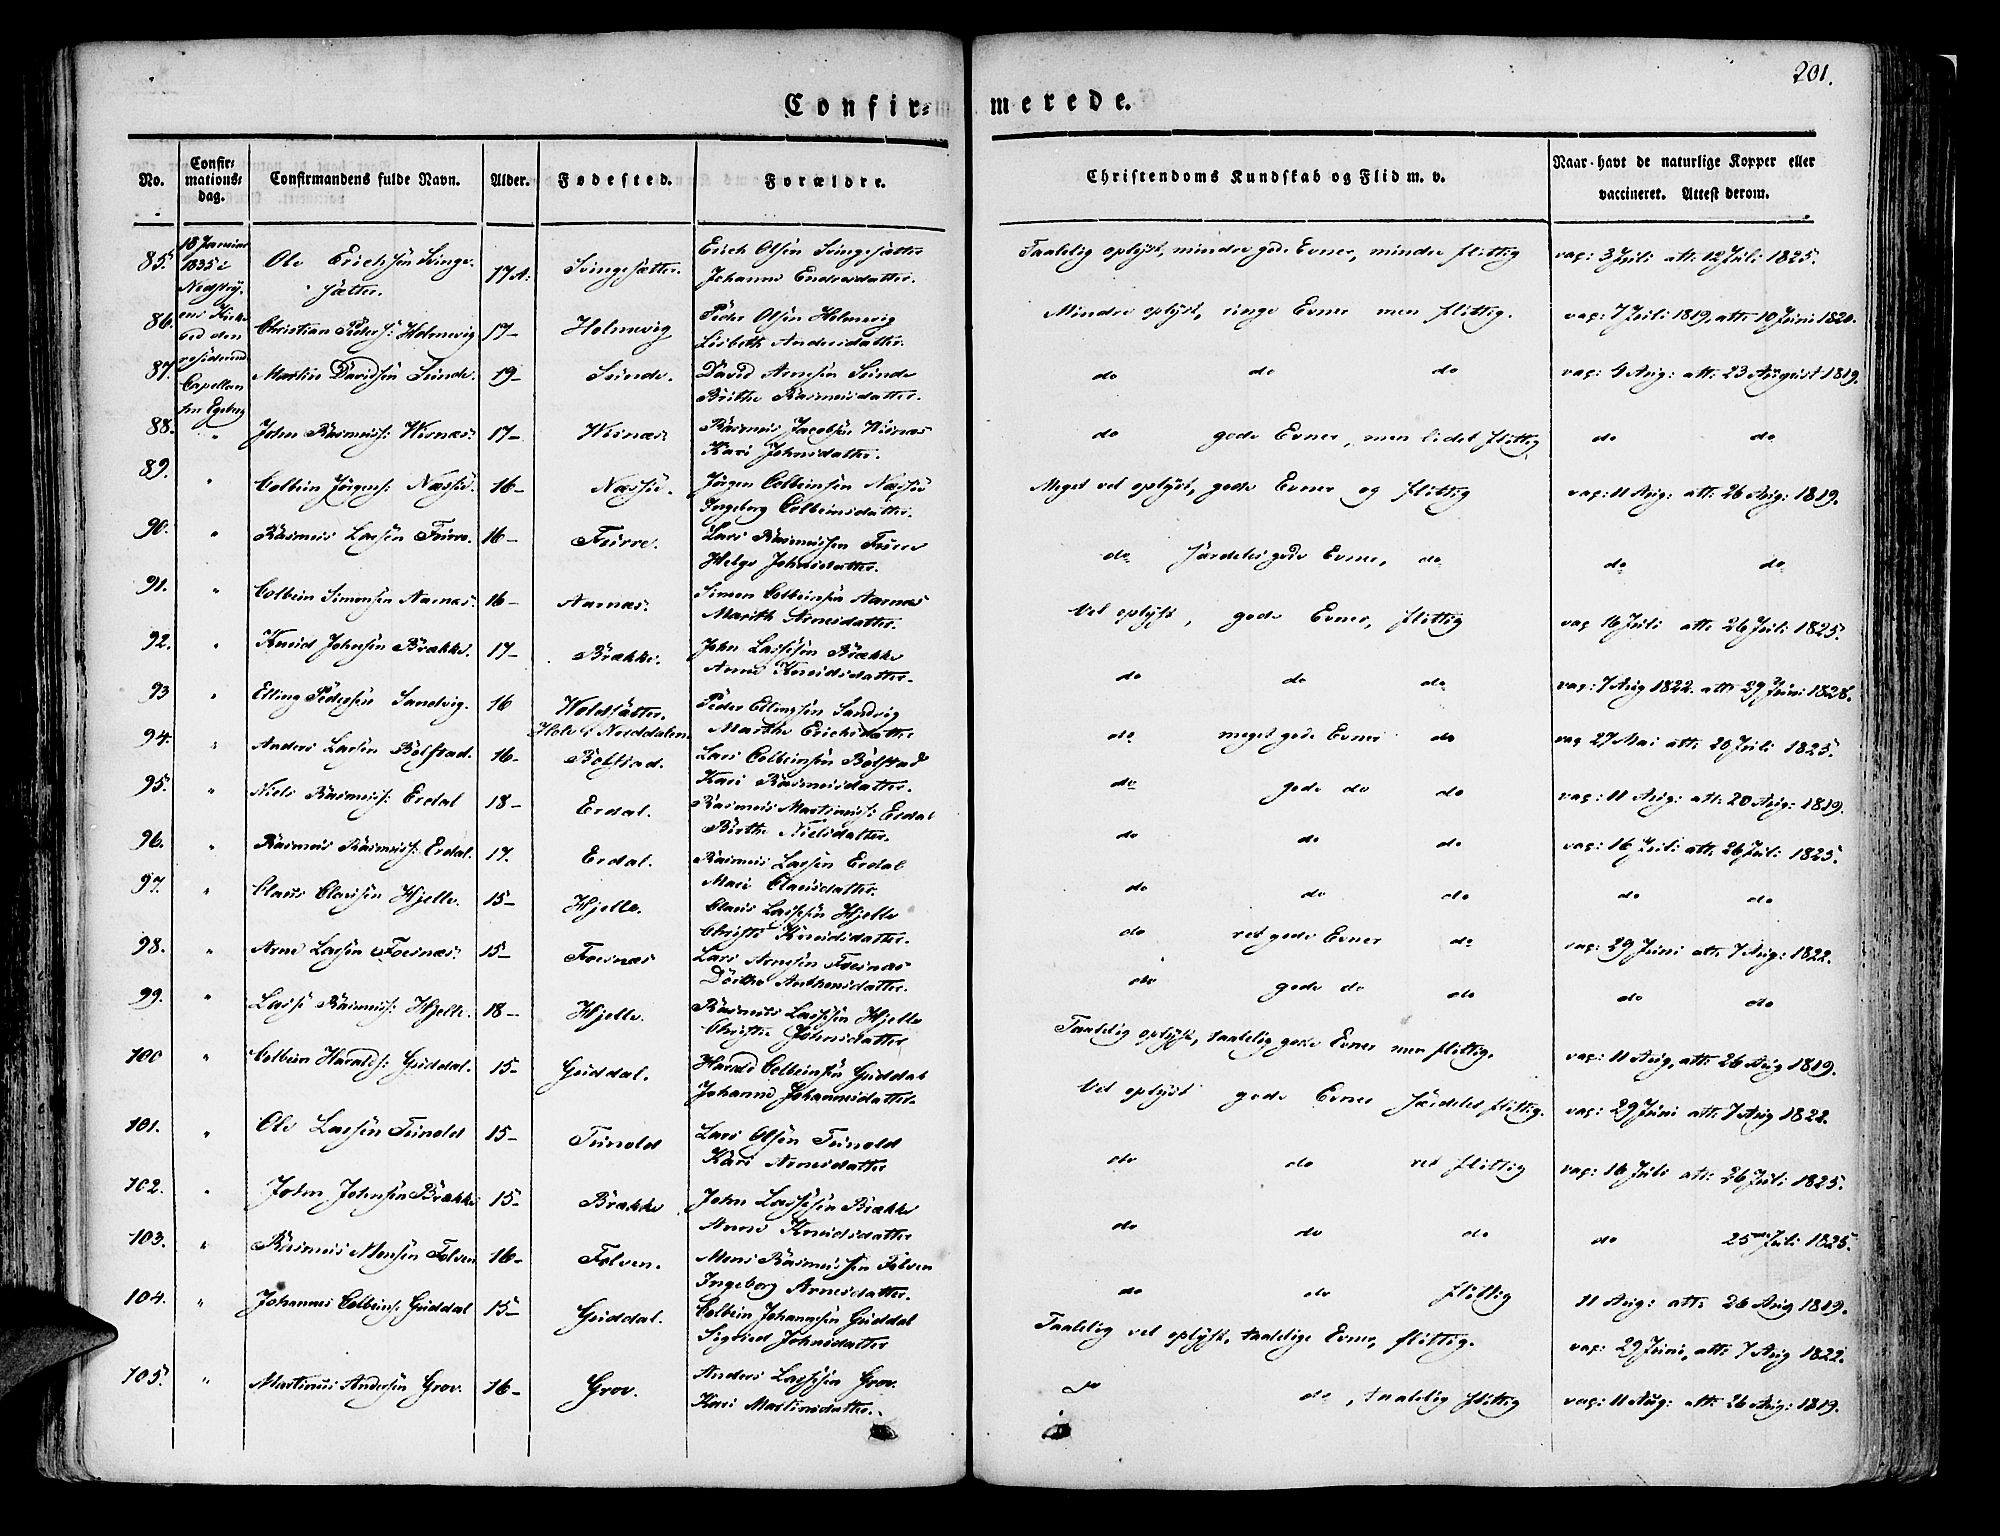 201.
Confir- merede.
No. Confir-mations-dag. Confirmandens fulde Navn. Alder. Fødested. Forældre. Christendoms Kundskab og Flid m. v. Naar havt de naturlige Kopper eller vaccineret. Attest derom.
85. 18 Januar 1835 i Ole Erichsen Svingesætter. 17 A: Svingesætter. Erich Olsen Svingesætter Johanne Endresdatter. Taalelig oplyst, mindre gode Evner, mindre flittig vac: 3 Juli att: 12 Juli 1825.
86. Kirke ved den Christian Peders: Holmvig 17- Holmvig Peder Olsen Holmvig Lisbeth Andersdatter. Mindre oplyst, ringe Evner men flittig. vac: 7 Juli 1819, att: 10 Juni 1820.
87. residerend Capellan Martin Davidsen Sunde. 19- Sunde. David Arnesen Sunde Brithe Rasmusdatter. do do do vac: 4 Aug: att: 23 August 1819.
88. Hr Egeberg " John Rasmuss: Wisnæs 17- Wisnæs Rasmus Jacobsen Wisnæs Kari Johnsdatter. do gode Evner, men lidet flittig do do
89. " Colbein Jørgens: Næssje 16- Næssje. Jørgen Colbeinsen Næssje Ingeborg Colbeinsdatter. Meget vel oplyst, gode Evner og flittig vac: 11 Aug: att: 26 Aug: 1819.
90. " Rasmus Larsen Furre. 16- Furre. Lars Rasmussen Furre Helge Johnsdatter. do særdeles gode Evner, do do do
91. " Colbein Simonsen Aarnæs. 16- Aarnæs. Simon Colbeinsen Aarnæs Marith Arnesdatter. Vel oplyst, gode Evner, flittig vac 16 Juli att: 26 Juli 1825.
92. " Knud Johnsen Brække. 17- Brække. John Lassesen Brække Anne Knudsdatter. do do do vac: 7 Aug 1822. att: 29 Juni 1828.
93 " Elling Pedersen Sandvig. 16 Woldsætter. Hole i Norddalen Peder Ellingsen Sandvig Marthe Erichsdatter do meget gode Evner do vac 27 Mai att: 20 Juli 1825.
94. " Anders Larsen Bølstad. 16- Bølstad. Lars Colbeinsen Bølstad Kari Rasmusdatter. do gode do do vac: 11 Aug: att: 20 Aug: 1819.
95. " Niels Rasmuss: Erdal 18- Erdal. Rasmus Martinuss: Erdal Birthe Nielsdatter. do do do vac: 16 Juli att: 26 Juli 1825.
96. " Rasmus Rasmuss: Erdal. 17. Erdal. Rasmus Larsen Erdal Mari Clausdatter. do do do do do
97. " Claus Clausen Hjelle. 15- Hjelle. Claus Lassesen Hjelle Christi Knudsdatter. do ret gode Evner do vac: 29 Juni att: 7 Aug: 1822.
98. " Arne Larsen Fosnæs. 15- Fosnæs Lars Arnesen Fosnæs Dorthe Anthonsdatter. do gode do do do do
99. " Lasse Rasmuss: Hjelle. 18- Hjelle. Rasmus Lassesen Hjelle Christie Johnsdatter Taalelig oplyst, taalelig gode Evner men flittig. vac: 11 Aug, att: 26 Aug 1819.
100 " Colbein Haralds: Guddal. 15- Guddal. Harald Colbeinsen Guddal Johanne Johannesdatter. Vel oplyst gode Evner særdeles flittig. vac: 29 Juni att: 7 Aug 1822.
101. " Ole Larsen Tunold 15- Tunold Lars Olsen Tunold Kari Arnesdatter do do ret flittig vac: 16 Juli att: 26 Juli 1825.
102. " John Johnsen Brække 15- Brække John Lassesen Brække Anne Knudsdatter do do do do 25 Juli 1825.
103. " Rasmus Monsen Folven 16- Folven. Mons Rasmussen Folven Ingeborg Arnesdatter. do do flittig 11 Aug: att: 26 Aug 1819.
104. " Johannes Colbeins: Guddal 15- Guddal. Colbein Johannsen Guddal Sigried Johnsdatter Taalelig vel oplyst, taalelige Evner, flittig. vac: 29 Juni, att: 7 Aug 1822.
105. " Martinus Andersen Grov. 16- Grov. Anders Lassesen Grov. Kari Martinsdatter. do do, taalelig flittig vac: 11 Aug: att: 26 Aug: 1819.